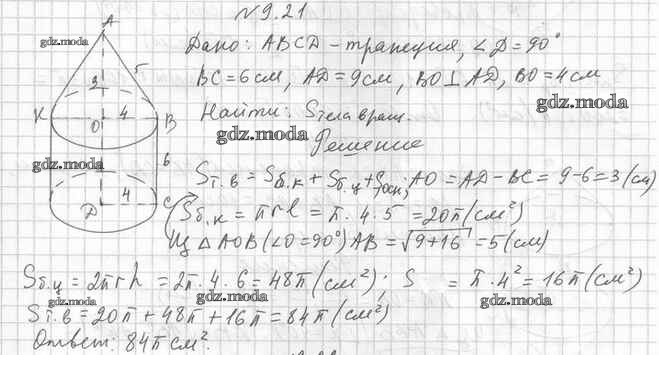 №9.21
Дано: ABCD – трапеция, ∠D = 90°
BC = 6 см, AD = 9 см, BO ⊥ AD, BO = 4 см
Найти: Sтела вращ.
Решение
Sт.в = Sб.к + Sб.ц + Sосн; AO = AD – BC = 9 – 6 = 3 (см)
Sб.к = πrl = π · 4 · 5 = 20π (см²)
Из △AOB (∠O = 90°) AB = √9+16 = 5 (см)
Sб.ц = 2πrh = 2π · 4 · 6 = 48π (см²); S = π · 4² = 16π (см²)
Sт.в = 20π + 48π + 16π = 84π (см²)
Ответ: 84π см².
A
3
5
K
O
4
B
6
D
4
C
gdz.moda
gdz.moda
gdz.moda
gdz.moda
gdz.moda
gdz.moda
gdz.moda